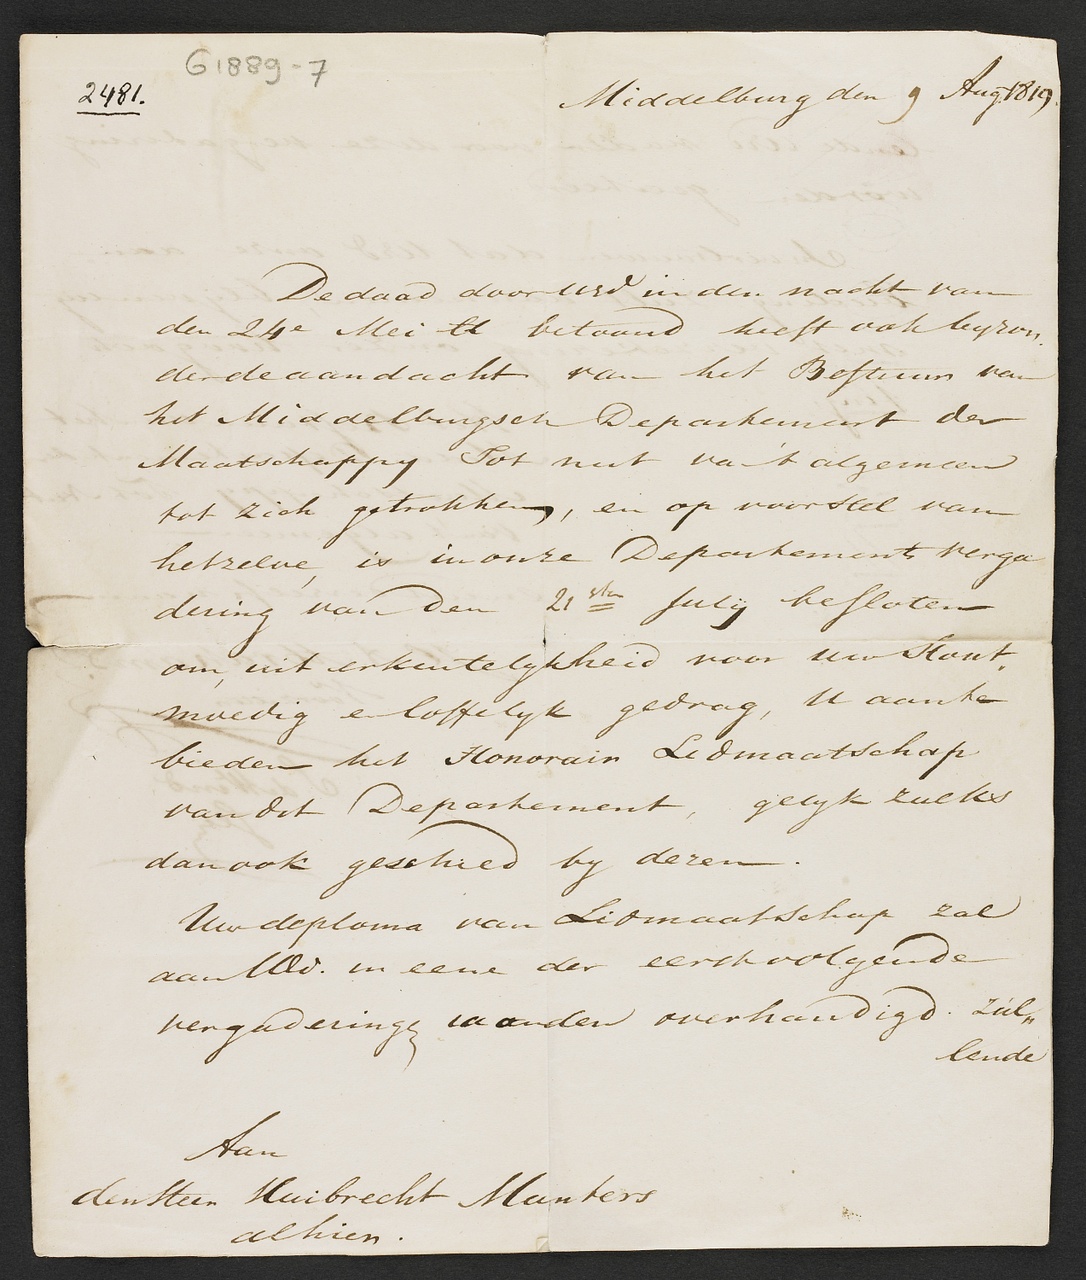 G1889-7
2481.
Middelburg den 9 Aug. 1819.
De daad door UEd in den nacht van
den 24e Mei ll betoond heeft ook byzon„
dere de aandacht van het Bestuur van
het Middelburgsch Departement der
Maatschappy Tot nut van 't algemeen
tot zich getrokken, en op voorstel van
hetzelve, is in onze Departements verga
dering van den 21sten July besloten
om, uit erkentelykheid voor uw Stout„
moedig en loffelyk gedrag, U aan te
bieden het Honorair Lidmaatschap
van dit Departement, gelyk zulks
dan ook geschied by dezen.
Uw deploma van Lidmaatschap zal
aan UEd. in eene der eerstvolgende
vergaderingen worden overhandigd. zul„
lende
Aan
den Heer Huibrecht Munters
alhier.